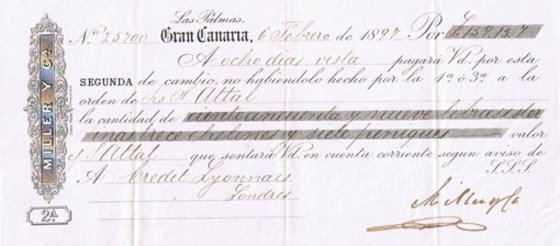 Las Palmas.
Nº 25700 Gran Canaria, 6 Febrero de 1897 Por £ 159.13.7
A ocho dias vista pagará Vd. por esta
SEGUNDA de cambio no habiéndolo hecho por 1ª ó 3ª a la
orden de Attal
la cantidad de ciento cincuenta y nueve libras
trece chelines y siete peniques valor
Attal que sentará Vd. en cuenta corriente segun aviso de
A Credit Lyonnais S.S.S.
Londres
Miller y Ca
MILLER Y Cª
2ª